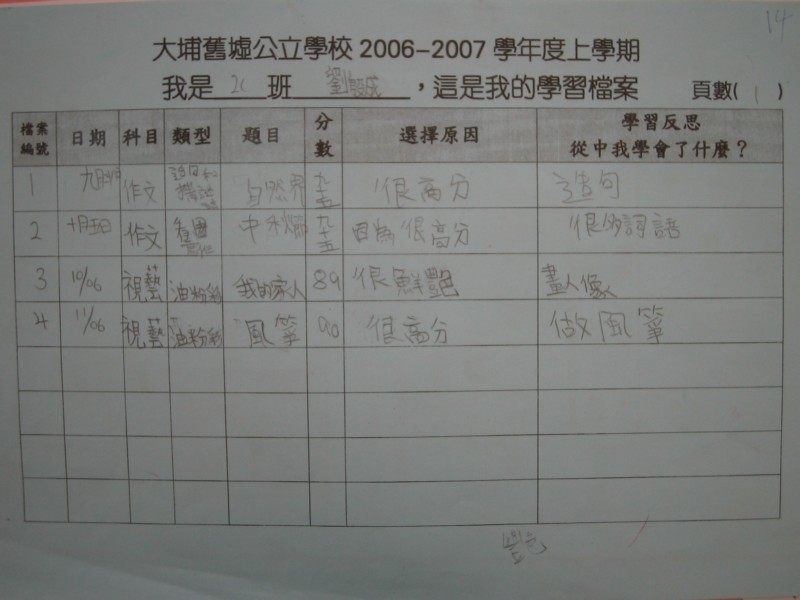 14
大埔舊墟公立學校 2006-2007 學年度上學期
我是 2C 班 劉毅成 ,這是我的學習檔案 頁數( 1 )
檔案編號 日期 科目 類型 題目 分數 選擇原因 學習反思 從中我學會了什麼?
1 作文 自然界 九十五 很高分 造句
2 十月五日 作文 看圖 中秋節 九十五 因為很高分 很多詞語
3 10/06 視藝 油粉彩 我的家人 89 很鮮艷 畫人像
4 11/06 視藝 油粉彩 風箏 90 很高分 做風箏
艷